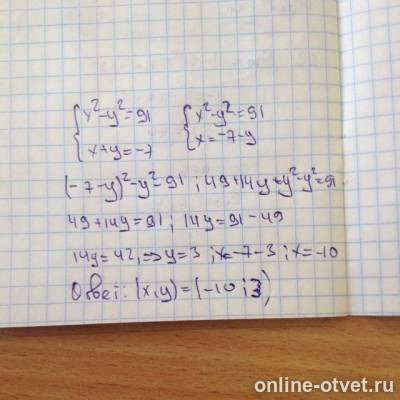 {x²-y²=91 {x²-y²=91
{x+y=-7 {x=-7-y
(-7-y)²-y²=91; 49+14y+y²-y²=91
49+14y=91; 14y=91-49
14y=42, => y=3; x=-7-3; x=-10
Ответ: (x,y)=(-10;3)
online-otvet.ru